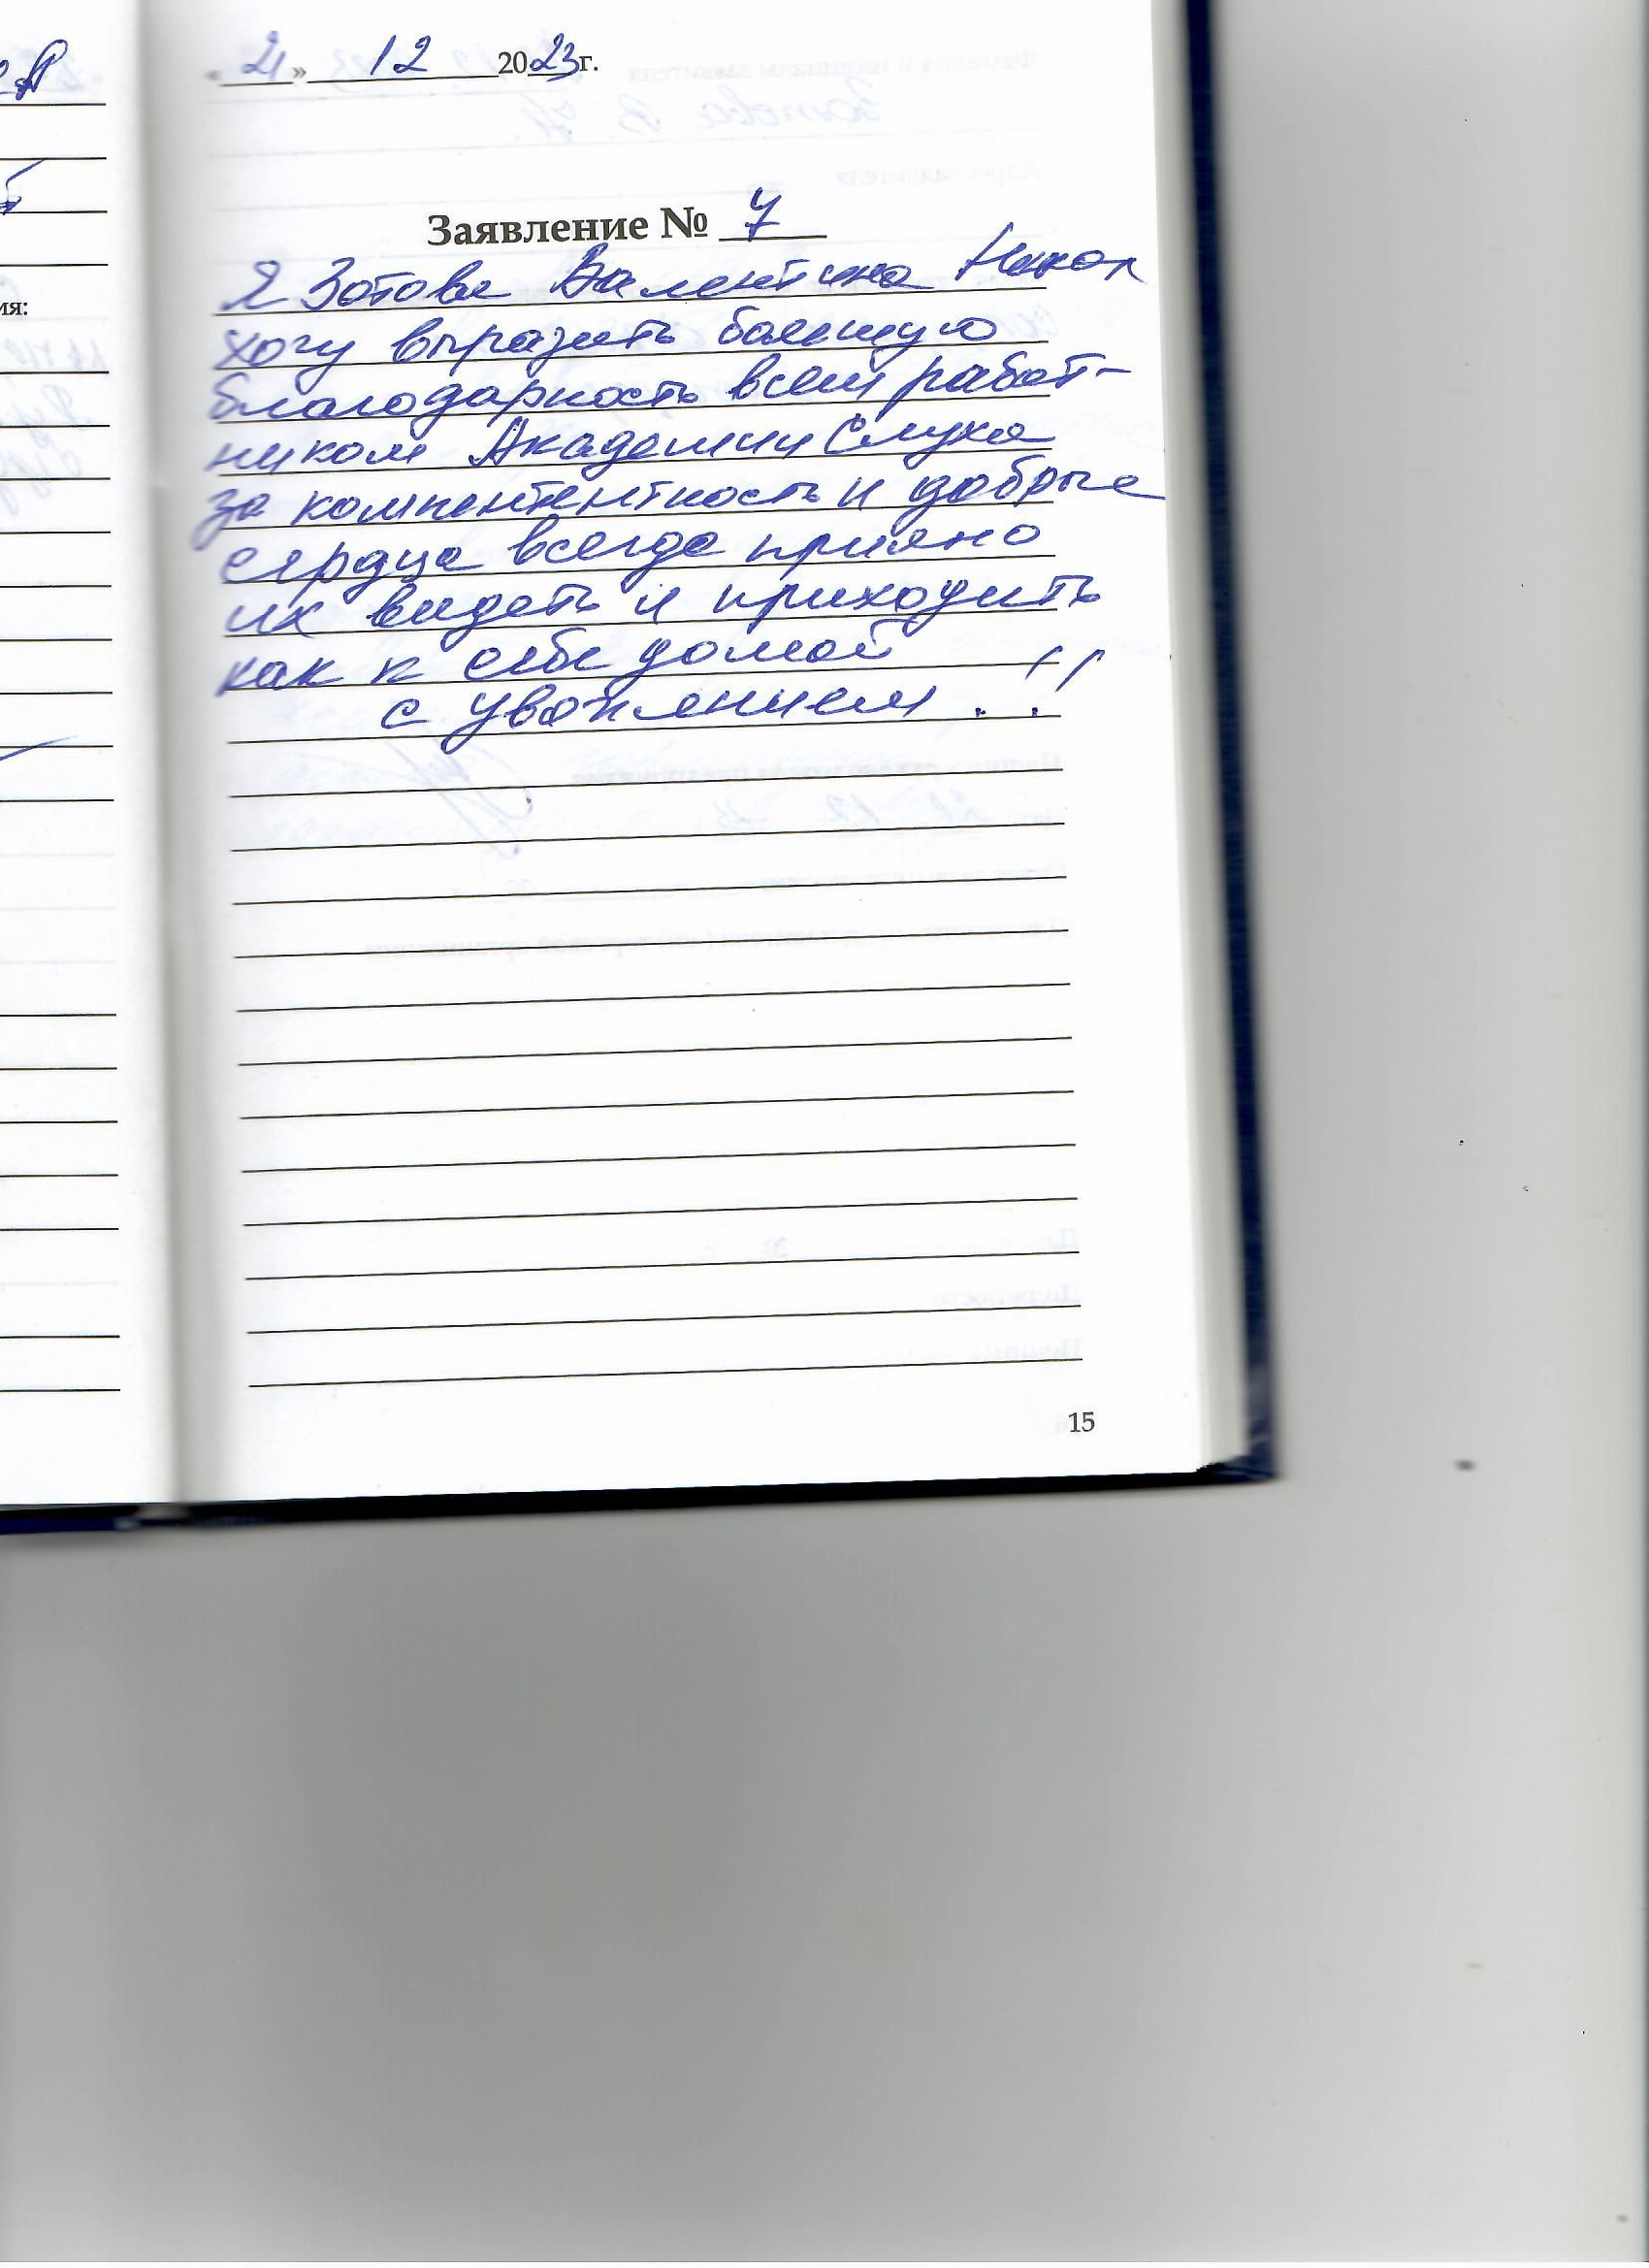 « 21 » 12 2023 г.
Заявление № 7
Я Зотова Валентина Никол
хочу выразить большую
благодарность всем работ-
ником Академии Слуха
за компентентность и добрые
сердца всегда прияно
их видеть и приходить
как к себе домой
с уважением !!
15
ия: